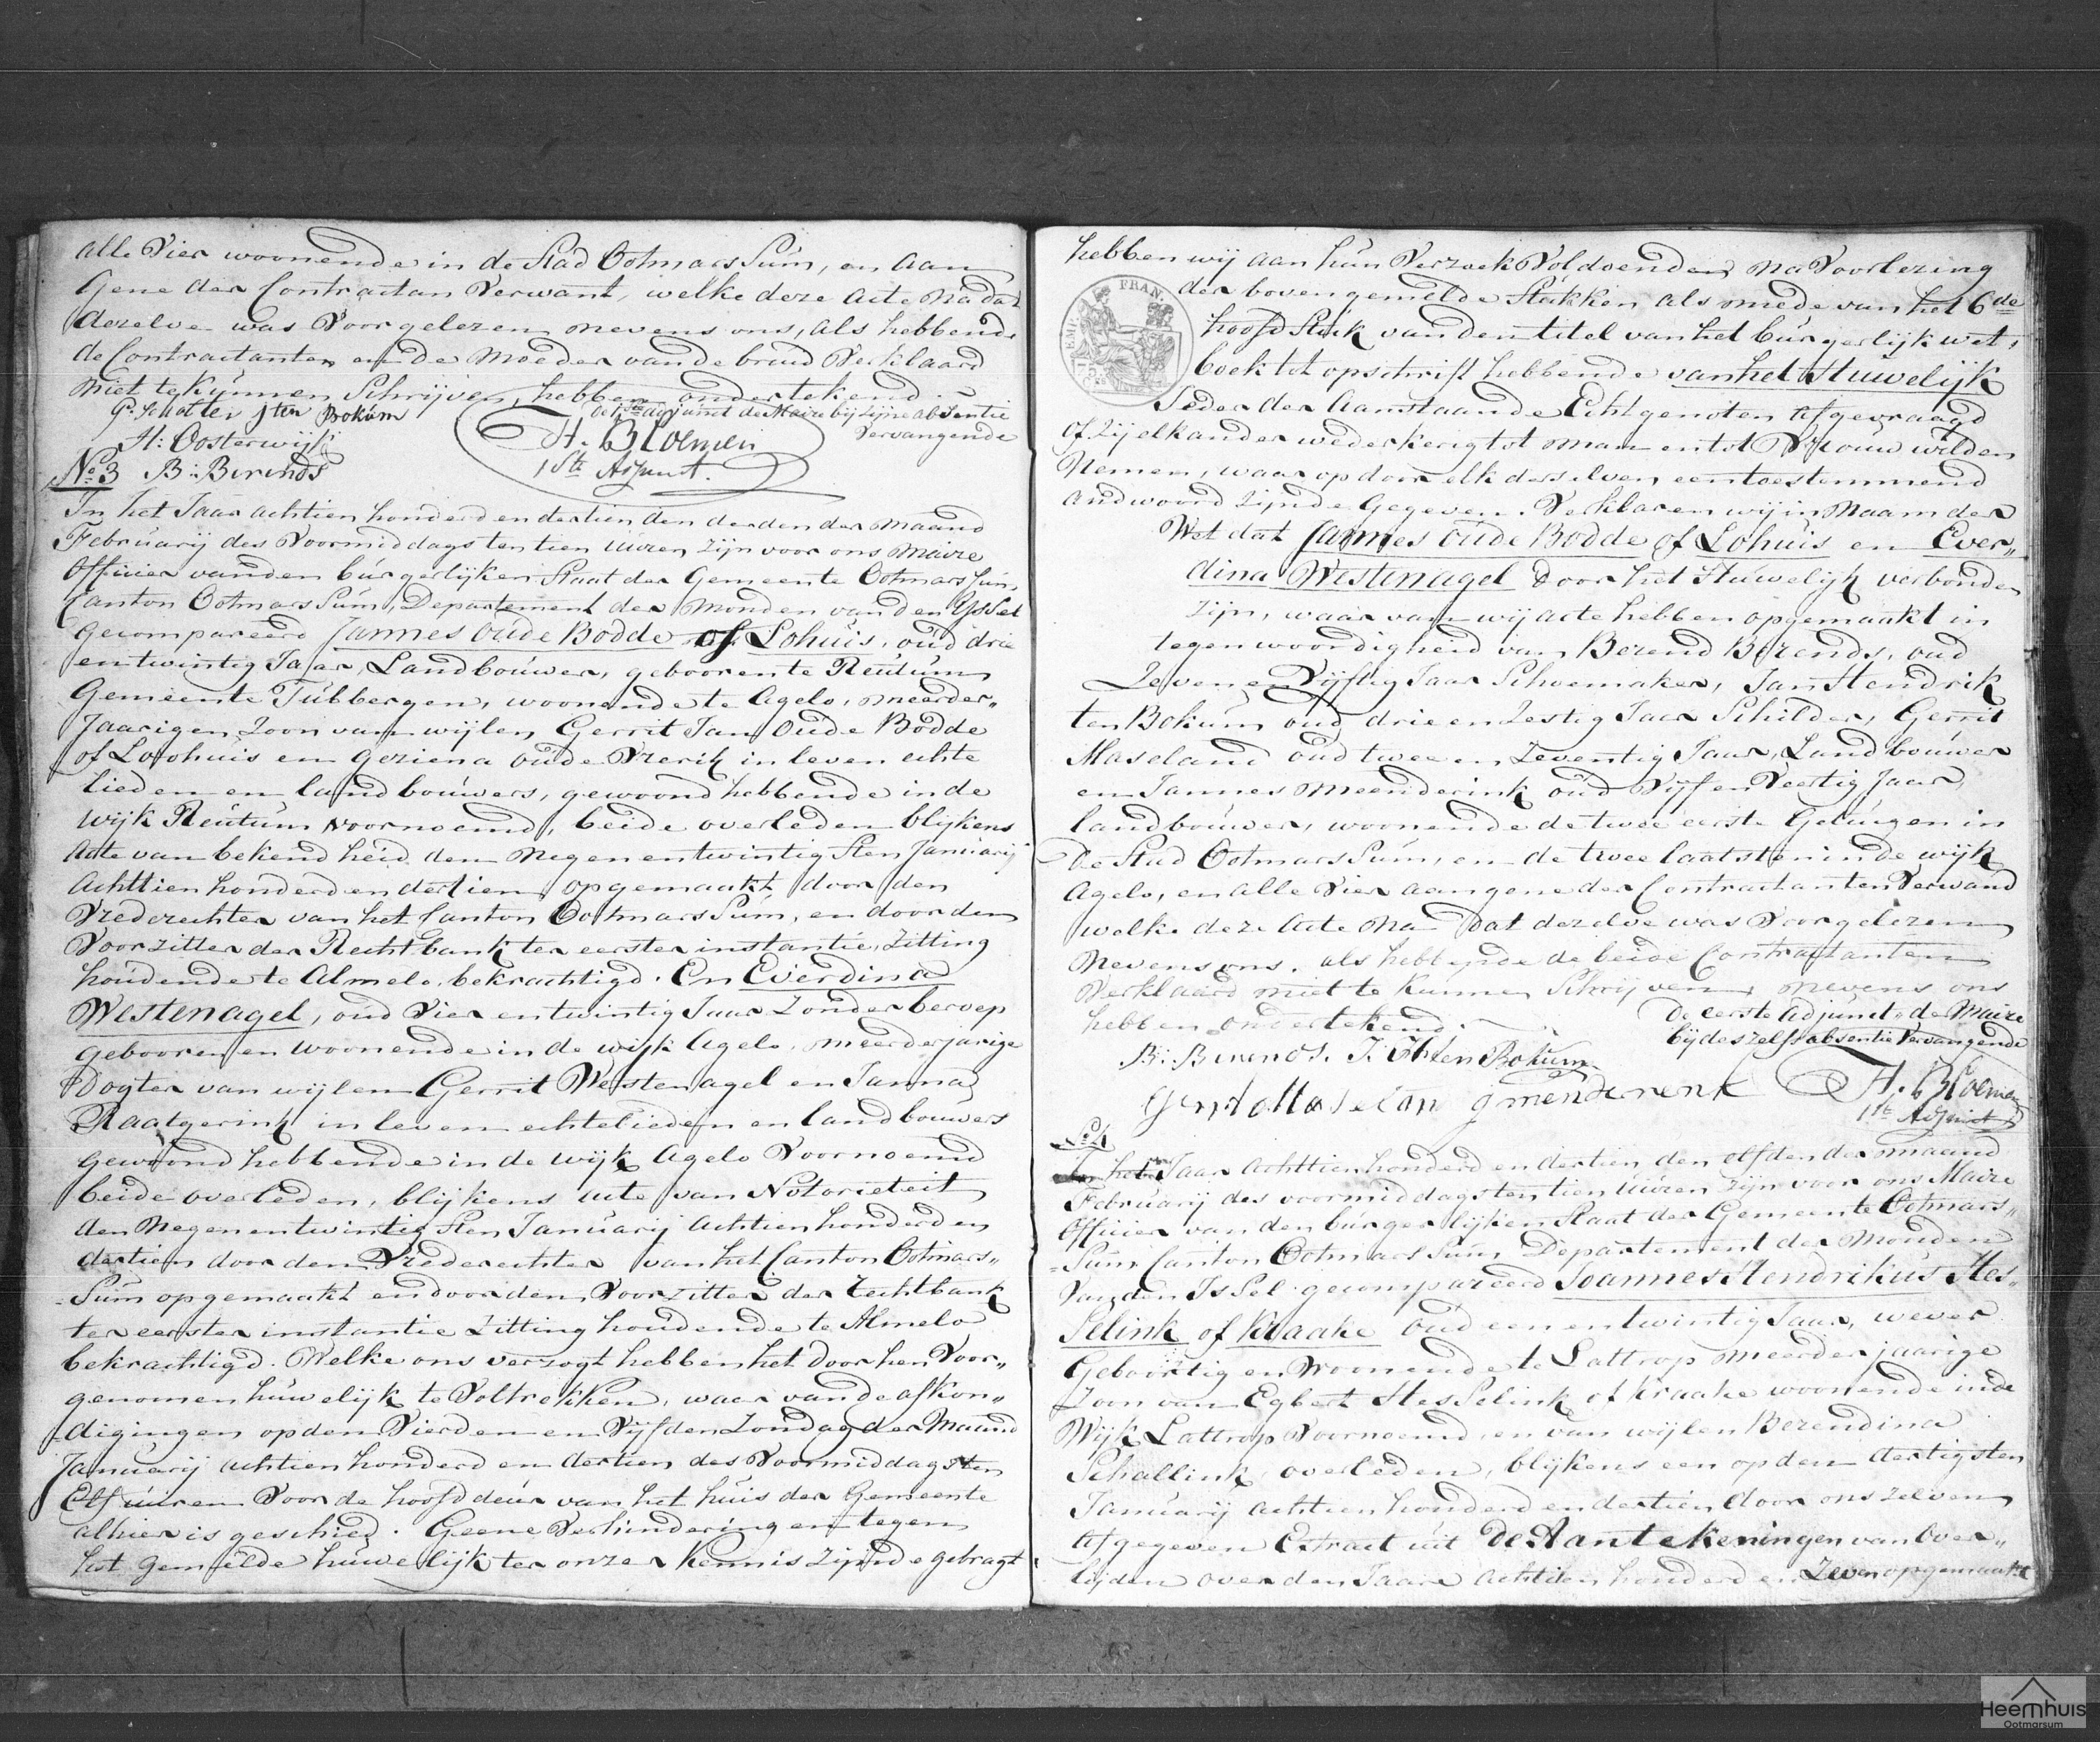 alle Vier woonende in de Stad OotmarsSum, en aan
Gene der Contractan Verwant, welke deze acte na dat
dezelve was Voorgelezen nevens ons, als hebbende
de Contractanten en de Moeder van de bruid Verklaard
niet te Kunnen Schrijven, hebben ondertekend.
de 1ste adjunct de Maire bij Zijne absentie
Vervangende
Jten Bokum
H: Oosterwijk
H. Bloemen
1ste Adjunct.
No 3 B: Berends
In het Jaar achtien honderd en dertien den derden der maand
Februarij des Voormiddags ten tien uuren zijn voor ons Maire
Officier van den burgerlijken Staat der Gemeente OotmarsSum,
Canton OotmarsSum, Departement der Monden van den YsSel
gecompareerd Jannes Oude Bodde of Lohuis, oud drie
en twintig Jaar, Landbouwer, gebooren te Reutum
Gemeente Tubbergen, woonende te Agelo, meerder„
Jaarigen Zoon van wijlen Gerrit Jan Oude Bodde
of Loohuis en Geziena Oude Vrerik in leven echte
lieden en landbouwers, gewoond hebbende in de
wijk Reutum voornoemd, beide overleden blijkens
Acte van bekendheid den Negen en twintigsten Januarij
Achttien honderd en dertien opgemaakt door den
Vrederechter van het Canton OotmarsSum, en door den
Voorzitter der Rechtbank ter eerster instantie, Zitting
houdende te Almelo, bekrachtigd. En Everdina
Westenagel, oud Vier en twintig Jaar Zonder beroep
gebooren en woonende in de wijk Agelo, meerderjarige
Dogter van wijlen Gerrit Westenagel en Janna
Raatgerink in leven echtelieden en landbouwers
gewoond hebbende in de wijk Agelo Voornoemd
beide overleden, blijkens acte van Notorieteit
den Negen en twintigsten Januarij achtien honderd en
dertien door den Vrederechter van het Canton Ootmars„
Sum opgemaakt en door den Voorzitter der rechtbank
ter eerster instantie Zitting houdende te Almelo
bekrachtigd. Welke ons verzogt hebben het door hen Voor„
genomen huwelijk te Voltrekken, waar van de afkon„
digingen op den Vierden en Vijfden Zondag der Maand
Januarij achtien honderd en dertien des Voormiddags ten
Elf uuren Voor de hoofddeur van het huis der Gemeente
alhier is geschied. Geene Verhinderingen tegen
het gemelde huwelijk ter onzer Kennis Zijnde gebragt
hebben wij aan hun Verzoek Voldoende, na Voorlezing
der bovengemelde Stukken als mede van het 6de
hoofdStuk van den titel van het burgerlijk wet„
boek tot opschrift hebbende van het Huwelijk
FRAN.
Jeder der Aanstaande Echtgenoten afgevraagd
of Zij elkander wederkerig tot man en tot Vrouw wilden
Nemen, waar op door elk derselven een toestemmend
andwoord zijnde Gegeven. Verklaren wij in Naam der
Wet dat Jannes Oude Bodde of Lohuis en Ever„
dina Westenagel door het Huwelijk verbonden
zijn, waar van wij acte hebben opgemaakt in
tegenwoordigheid van Berend Berends, oud
Zeven en Vijftig Jaar Schoemaker, Jan Hendrik
ten Bokum oud drie en Zestig Jaar Schilder, Gerrit
Maseland oud twee en Zeventig Jaar, Landbouwer
en Jannes Meenderink oud Vijf en Veertig Jaar,
landbouwer, woonende de twee eerste Getuigen in
de Stad OotmarsSum, en de twee laatsten in de wijk
Agelo, en alle Vier aan gene der Contractanten Verwand
welke deze Acte na dat dezelve was Voorgelezen
Nevens ons, als hebbende de beide Contractanten
Verklaard niet te Kunnen Schrijven, nevens ons
hebben ondertekend.
de eerste adjunct de Maire
bij deszelfs absentie Vervangende
B: Berends. Bokum
H. Bloemen
1ste Adjunct
No 4
In het Jaar Achttien honderd en dertien den elfden der maand
Februarij des voormiddags ten tien Uuren zijn voor ons Maire
Officier van den burgerlijken Staat der Gemeente Ootmars„
Sum Canton OotmarsSum, Departement der Monden
Van den IsSel gecompareerd Joannes Hendrikus Hes„
Selink of Kraake oud een en twintig Jaar, wever
Geboortig en Woonende te Lattrop meerderjaarige
Zoon van Egbert HesSelink of Kraake woonende in de
Wijk Lattrop Voornoemd, en van wijlen Berendina
Schallink, overleden, blijkens een op den dertigsten
Januarij achtien honderd en dertien door ons Zelven
Afgegeven Extract uit De Aantekeningen van Over„
lijden over den Jaare achtien honderd en Zeven opgemaakt
Heemhuis
Ootmarsum